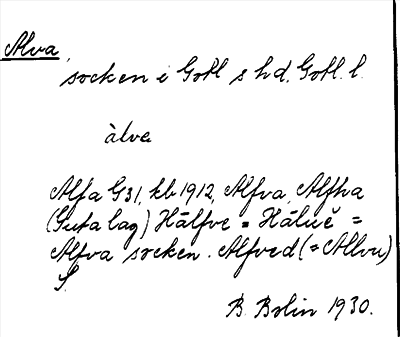 Alva,
socken i Gotl s hd. Gotl. l.
àlva
Alfa G31, kb 1912, Alfva, Alfha
(Guta lag) Hälfve = Häluě =
Alfva socken. Alfved (= Allvu)
S.
B. Bolin 1930.